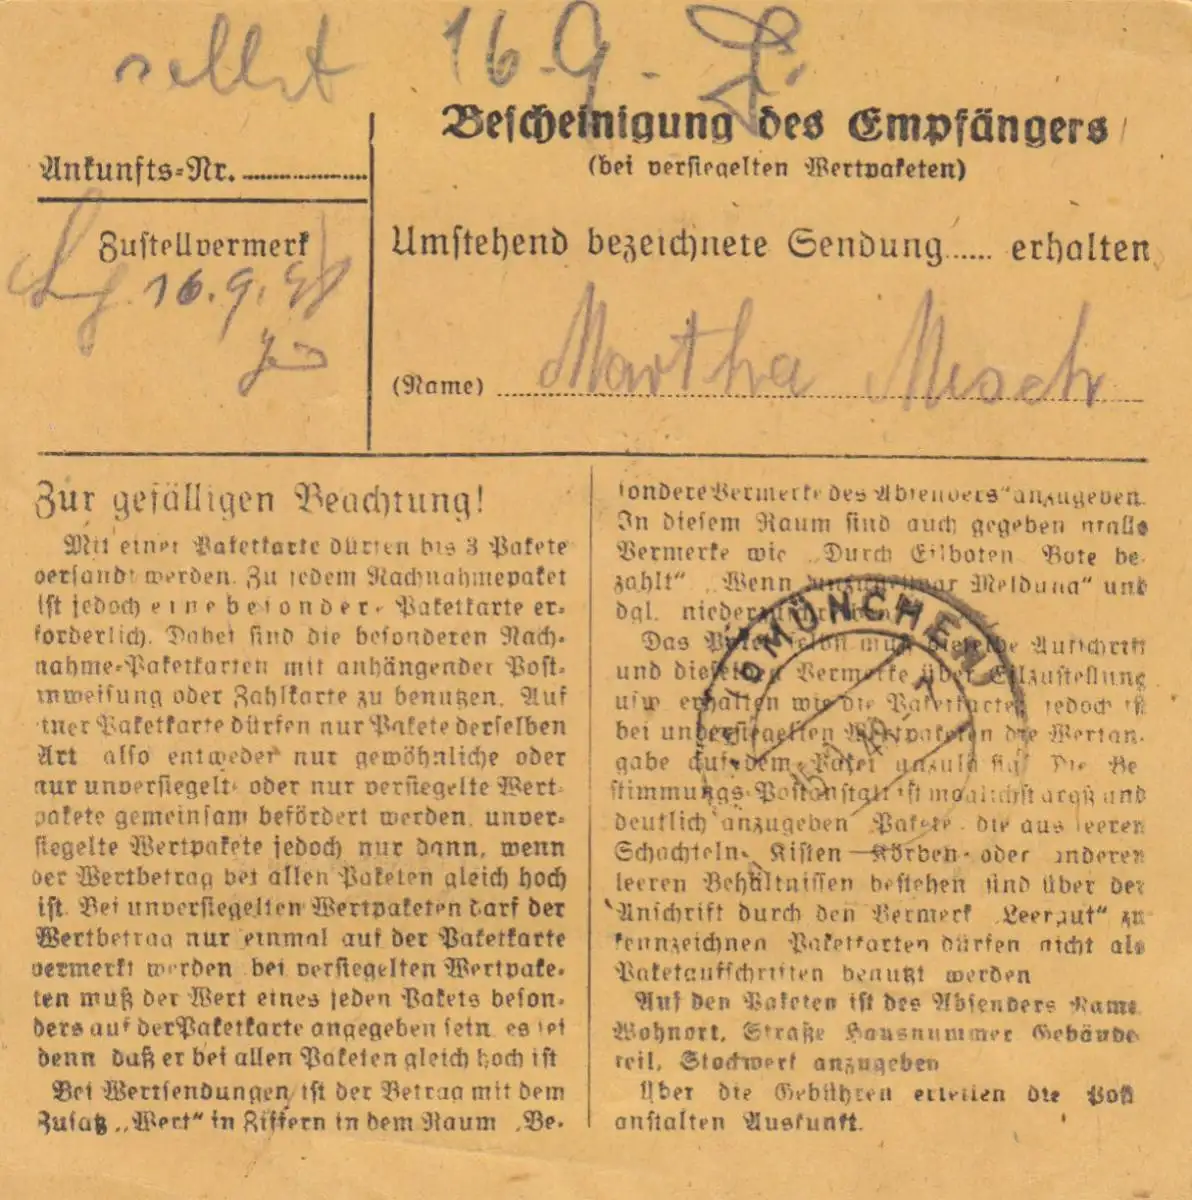 selbst 16.9.
Bescheinigung des Empfängers
(bei versiegelten Wertpaketen)
Ankunfts-Nr. ..................
Zustellvermerk
16.9.
Umstehend bezeichnete Sendung...... erhalten
(Name) Martha Mesch
Zur gefälligen Beachtung!
Mit einer Paketkarte dürfen bis 3 Pakete
versandt werden. Zu jedem Nachnahmepaket
ist jedoch eine besondere Paketkarte er-
forderlich. Dabei sind die besonderen Nach-
nahme-Paketkarten mit anhängender Post-
anweisung oder Zahlkarte zu benutzen. Auf
einer Paketkarte dürfen nur Pakete derselben
Art also entweder nur gewöhnliche oder
nur unversiegelte oder nur versiegelte Wert-
pakete gemeinsam befördert werden, unver-
siegelte Wertpakete jedoch nur dann, wenn
der Wertbetrag bei allen Paketen gleich hoch
ist. Bei unversiegelten Wertpaketen darf der
Wertbetrag nur einmal auf der Paketkarte
vermerkt werden bei versiegelten Wertpake-
ten muß der Wert eines jeden Pakets beson-
ders auf der Paketkarte angegeben sein, es sei
denn daß er bei allen Paketen gleich hoch ist
Bei Wertsendungen ist der Betrag mit dem
Zusatz „Wert“ in Ziffern in dem Raum „Be-
sondere Vermerke des Absenders“ anzugeben.
In diesem Raum sind auch gegebenenfalls
Vermerke wie „Durch Eilboten, Bote be-
zahlt“ „Wenn unzustellbar Meldung“ und
dgl. niederzuschreiben.
Das Paket selbst muß dieselbe Aufschrift
und dieselben Vermerke über Eilzustellung
usw erhalten wie die Paketkarte, jedoch ist
bei unversiegelten Wertpaketen die Wertan-
gabe auf dem Paket unzulässig. Die Be-
stimmungs-Postanstalt ist möglichst groß und
deutlich anzugeben Pakete, die aus leeren
Schachteln, Kisten Körben oder anderen
leeren Behältnissen bestehen sind über der
Anschrift durch den Vermerk „Leergut“ zu
kennzeichnen Paketkarten dürfen nicht als
Paketaufschriften benutzt werden
Auf den Paketen ist des Absenders Name
Wohnort, Straße Hausnummer Gebäude-
teil, Stockwerk anzugeben
Über die Gebühren erteilen die Post
anstalten Auskunft.
MÜNCHEN